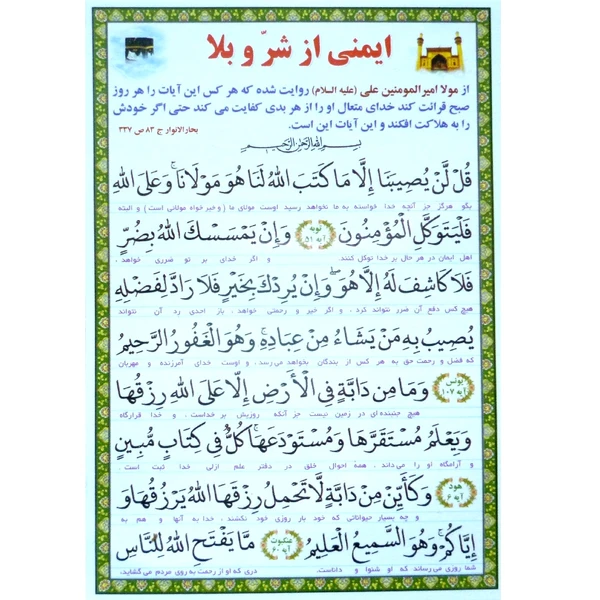 ایمنی از شرّ و بلا
از مولا امیرالمومنین علی (علیه السلام) روایت شده که هر کس این آیات را هر روز
صبح قرائت کند خدای متعال او را از هر بدی کفایت می کند حتی اگر خودش
را به هلاکت افکند و این آیات این است.
بحارالانوار ج ۸۳ ص ۳۳۷
بسم الله الرحمن الرحیم
قُلْ لَنْ يُصِيبَنَا إِلَّا مَا كَتَبَ اللهُ لَنَا هُوَ مَوْلَانَا وَعَلَى اللهِ
بگو هرگز جز آنچه خدا خواسته به ما نخواهد رسید اوست مولای ما (و خیر خواه مولائی است) و البته
فَلْيَتَوَكَّلِ الْمُؤْمِنُونَ توبه آیه ۵۱ وَإِنْ يَمْسَسْكَ اللهُ بِضُرٍّ
اهل ایمان در هر حال بر خدا توکل کنند. و اگر خدای بر تو ضرری خواهد،
فَلَا كَاشِفَ لَهُ إِلَّا هُوَ وَإِنْ يُرِدْكَ بِخَيْرٍ فَلَا رَادَّ لِفَضْلِهِ
هیچ کس دفع آن ضرر نتواند کرد، و اگر خیر و رحمتی خواهد، باز احدی رد آن نتواند
يُصِيبُ بِهِ مَنْ يَشَاءُ مِنْ عِبَادِهِ وَهُوَ الْغَفُورُ الرَّحِيمُ
که فضل و رحمت حق به هر کس از بندگان بخواهد می رسد، و اوست خدای آمرزنده و مهربان
یونس آیه ۱۰۷ وَمَا مِنْ دَابَّةٍ فِي الْأَرْضِ إِلَّا عَلَى اللهِ رِزْقُهَا
هیچ جنبنده ای در زمین نیست جز آنکه روزیش بر خداست، و خدا قرارگاه
وَيَعْلَمُ مُسْتَقَرَّهَا وَمُسْتَوْدَعَهَا كُلٌّ فِي كِتَابٍ مُبِينٍ
و آرامگاه او را می داند، همه احوال خلق در دفتر علم ازلی خدا ثبت است.
هود آیه ۶ وَكَأَيِّنْ مِنْ دَابَّةٍ لَا تَحْمِلُ رِزْقَهَا اللهُ يَرْزُقُهَا وَ
و چه بسیار حیواناتی که خود بار روزی خود نکشند، خدا به آنها و هم به
إِيَّاكُمْ وَهُوَ السَّمِيعُ الْعَلِيمُ عنکبوت آیه ۶۰ مَا يَفْتَحِ اللهُ لِلنَّاسِ
شما روزی می رساند که او شنوا و داناست. دری که او از رحمت به روی مردم می گشاید،